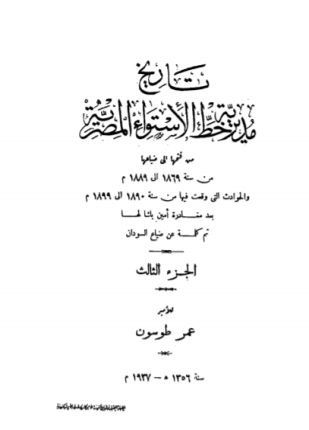 تاريخ
مديرية خط الاستواء المصرية
من فتحها الى ضياعها
من سنة ١٨٦٩ الى ١٨٨٩ م
والحوادث التى وقعت فيها من سنة ١٨٩٠ الى ١٨٩٩ م
بعد مغادرة أمين باشا لها
ثم كلمة عن ضياع السودان
الجزء الثالث
للأمير
عمر طوسون
سنة ١٣٥٦ ه – ١٩٣٧ م